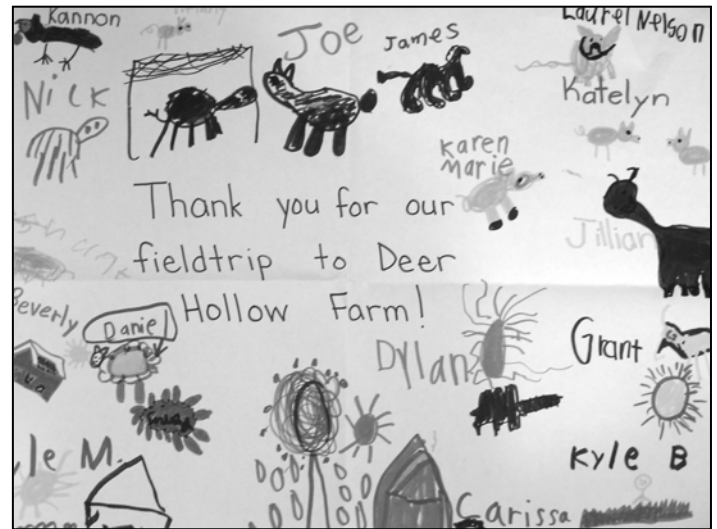 Kannon
Tiffany
Joe
James
Laurel Nelson
Nick
Katelyn
Karen
Marie
Thank you for our
fieldtrip to Deer
Hollow Farm!
Jillian
Beverly
Daniel
Dylan
Grant
yle M.
Kyle B
Carissa